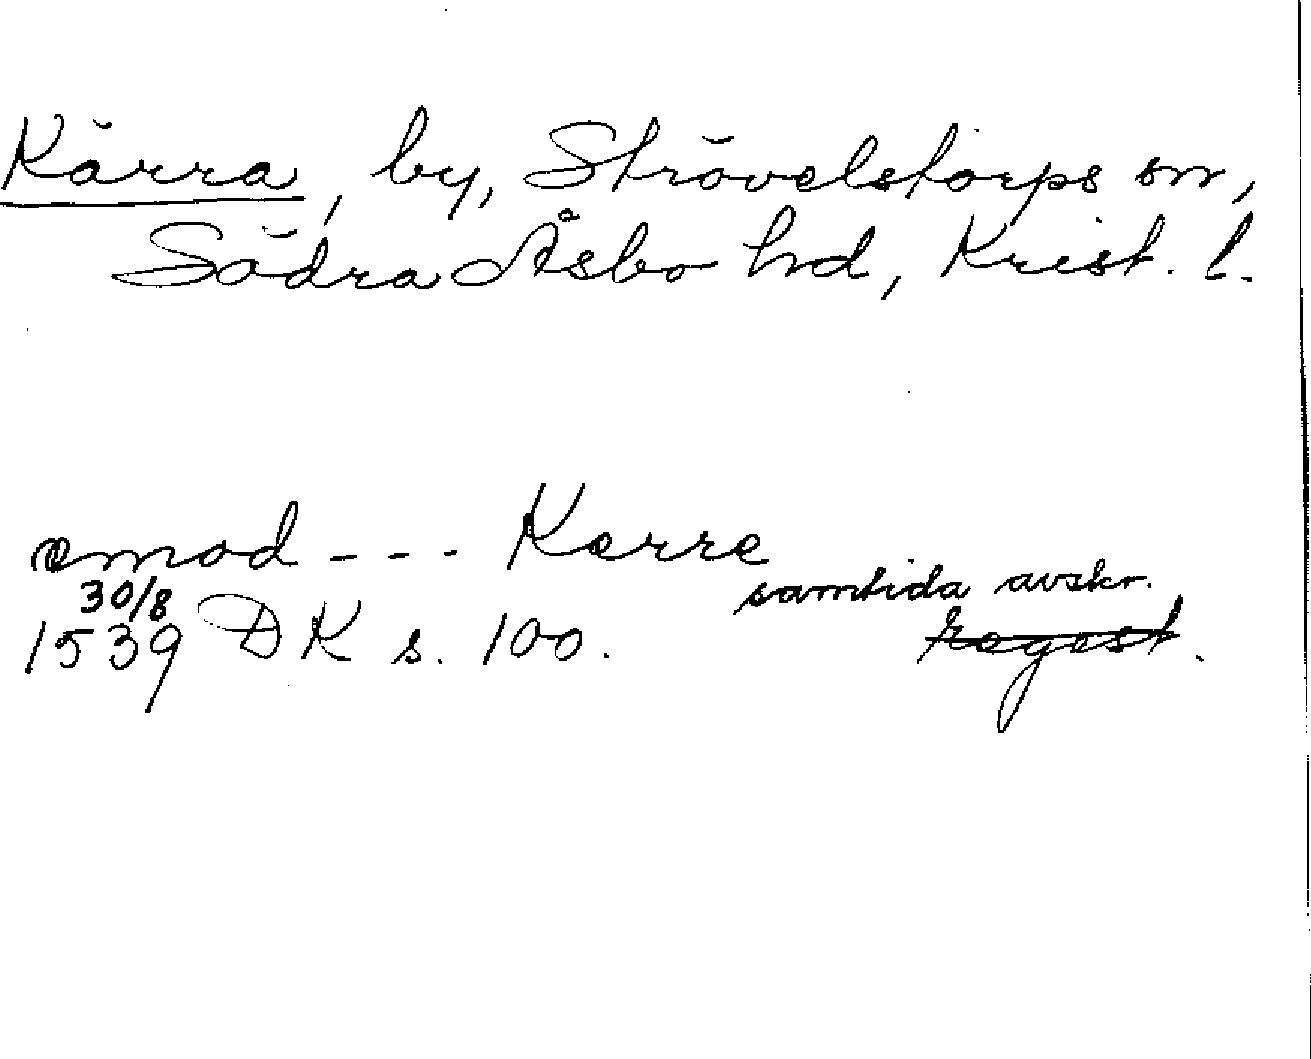 Kärra, by, Strövelstorps sn,
Södra Åsbo hd, Krist. l.
emod - - - Kerre
samtida avskr.
30/8
1539 DK s. 100. regest.